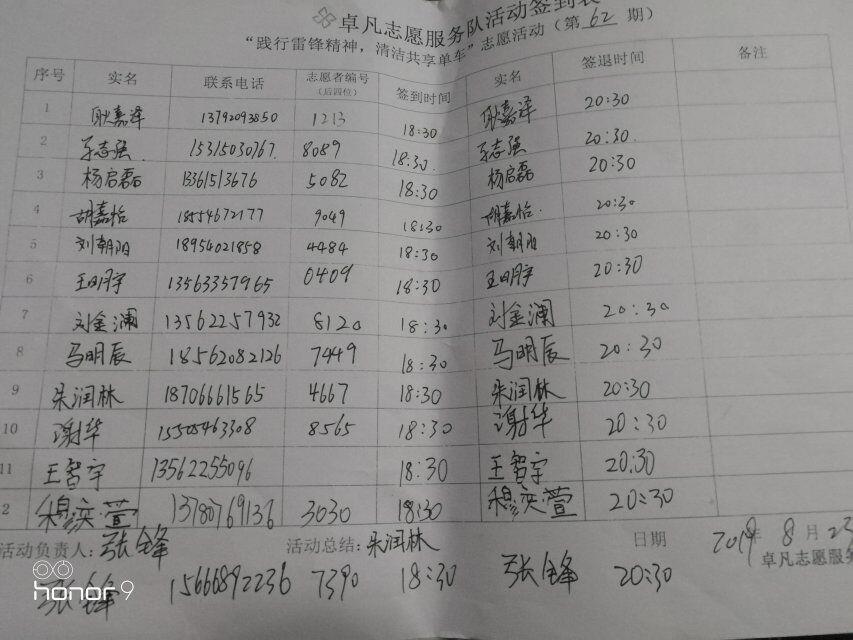 卓凡志愿服务队活动签到表
“践行雷锋精神，清洁共享单车”志愿活动（第 62 期）
序号 实名 联系电话 志愿者编号（后四位） 签到时间 实名 签退时间 备注
1 耿嘉泽 13792093850 1213 18:30 耿嘉泽 20:30
2 王志强. 15315030767. 8089 18:30. 王志强 20:30.
3 杨启磊 13361513676 5082 18:30 杨启磊 20:30
4 胡嘉怡 18554672177 9049 18:30 胡嘉怡. 20:30
5 刘朝阳 18954021858 4484 18:30 刘朝阳 20:30
6 王明宇 13563357965 0409 18:30 王明宇 20:30
7 刘金澜 13562257932 8120 18:30 刘金澜 20:30
8 马明辰 18562082126 7449 18:30 马明辰 20:30
9 朱润林 18706661565 4667 18:30 朱润林 20:30
10 谢华 15505463308 8565 18:30 谢华 20:30
11 王智宇 13562255096 18:30 王智宇 20:30
2 穆奕萱 13780769136 3030 18:30 穆奕萱 20:30
活动负责人: 张锋 活动总结: 朱润林 日期 2019年 8 月 23
卓凡志愿服务
张锋 15666892236 7390 18:30 张锋 20:30
honor 9